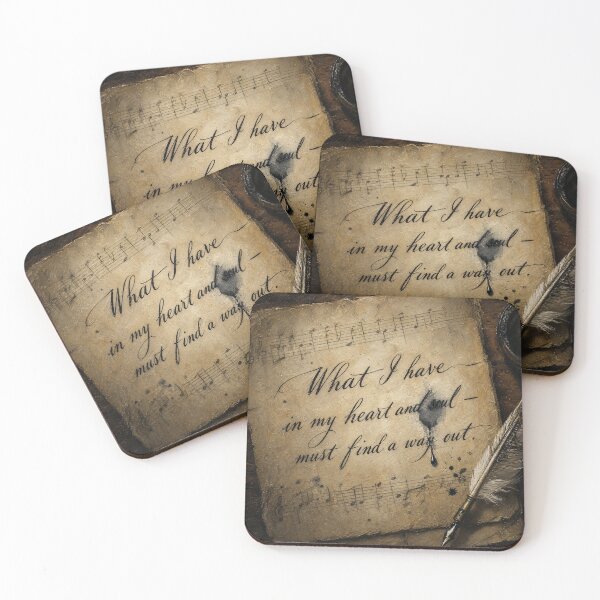 What I have —
in my heart and soul –
must find a way out
What I have —
in my heart and soul –
must find a way out.
What I have —
in my heart and soul –
must find a way out.
What I have —
in my heart and soul –
must find a way out